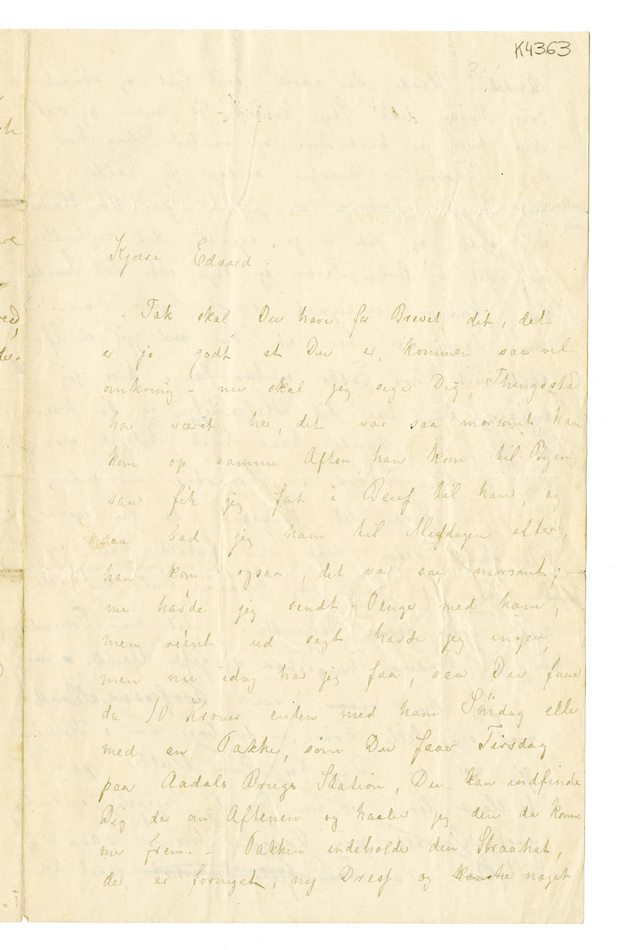 K4363
Kjære Edvard.
- Tak skal Du have for Brevet dit, det
er jo godt at Du er kommen saa vel
omkring - nu skal jeg sige Dig, Thingsstad
har været her, det var saa morsomt han
kom op samme Aften han kom til Byen,
saa fik jeg fat i Beuf til ham, og
saa bad jeg ham til Middagen efter,
han kom ogsaa, det var saa morsomt; -
nu havde jeg sendt Penge med ham,
men reent ud sagt havde jeg ingen,
men nu idag har jeg faa, saa Du faaer
da 10 Kroner enten med ham Søndag eller
med en Pakke, som Du faaer Tirsdag
paa Aadals Brugs Station, Du kan indfinde
Dig der om Aftenen og haaber jeg den da komme
nu frem. - Pakken indeholder din Straahat,
der er fornyet, ny Dress og kanske noget